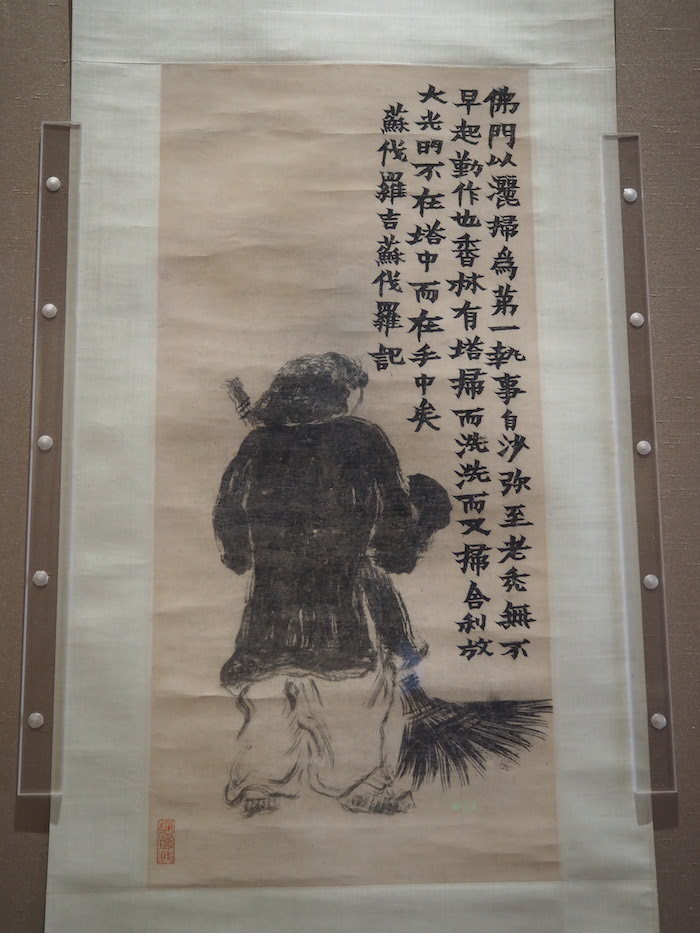 佛門以灑掃爲苐一執事自沙弥至老禿無不
早起勤作也香林有塔掃而洗洗而又掃舍利放
大光明不在塔中而在手中矣
蘇伐羅吉蘇伐羅記